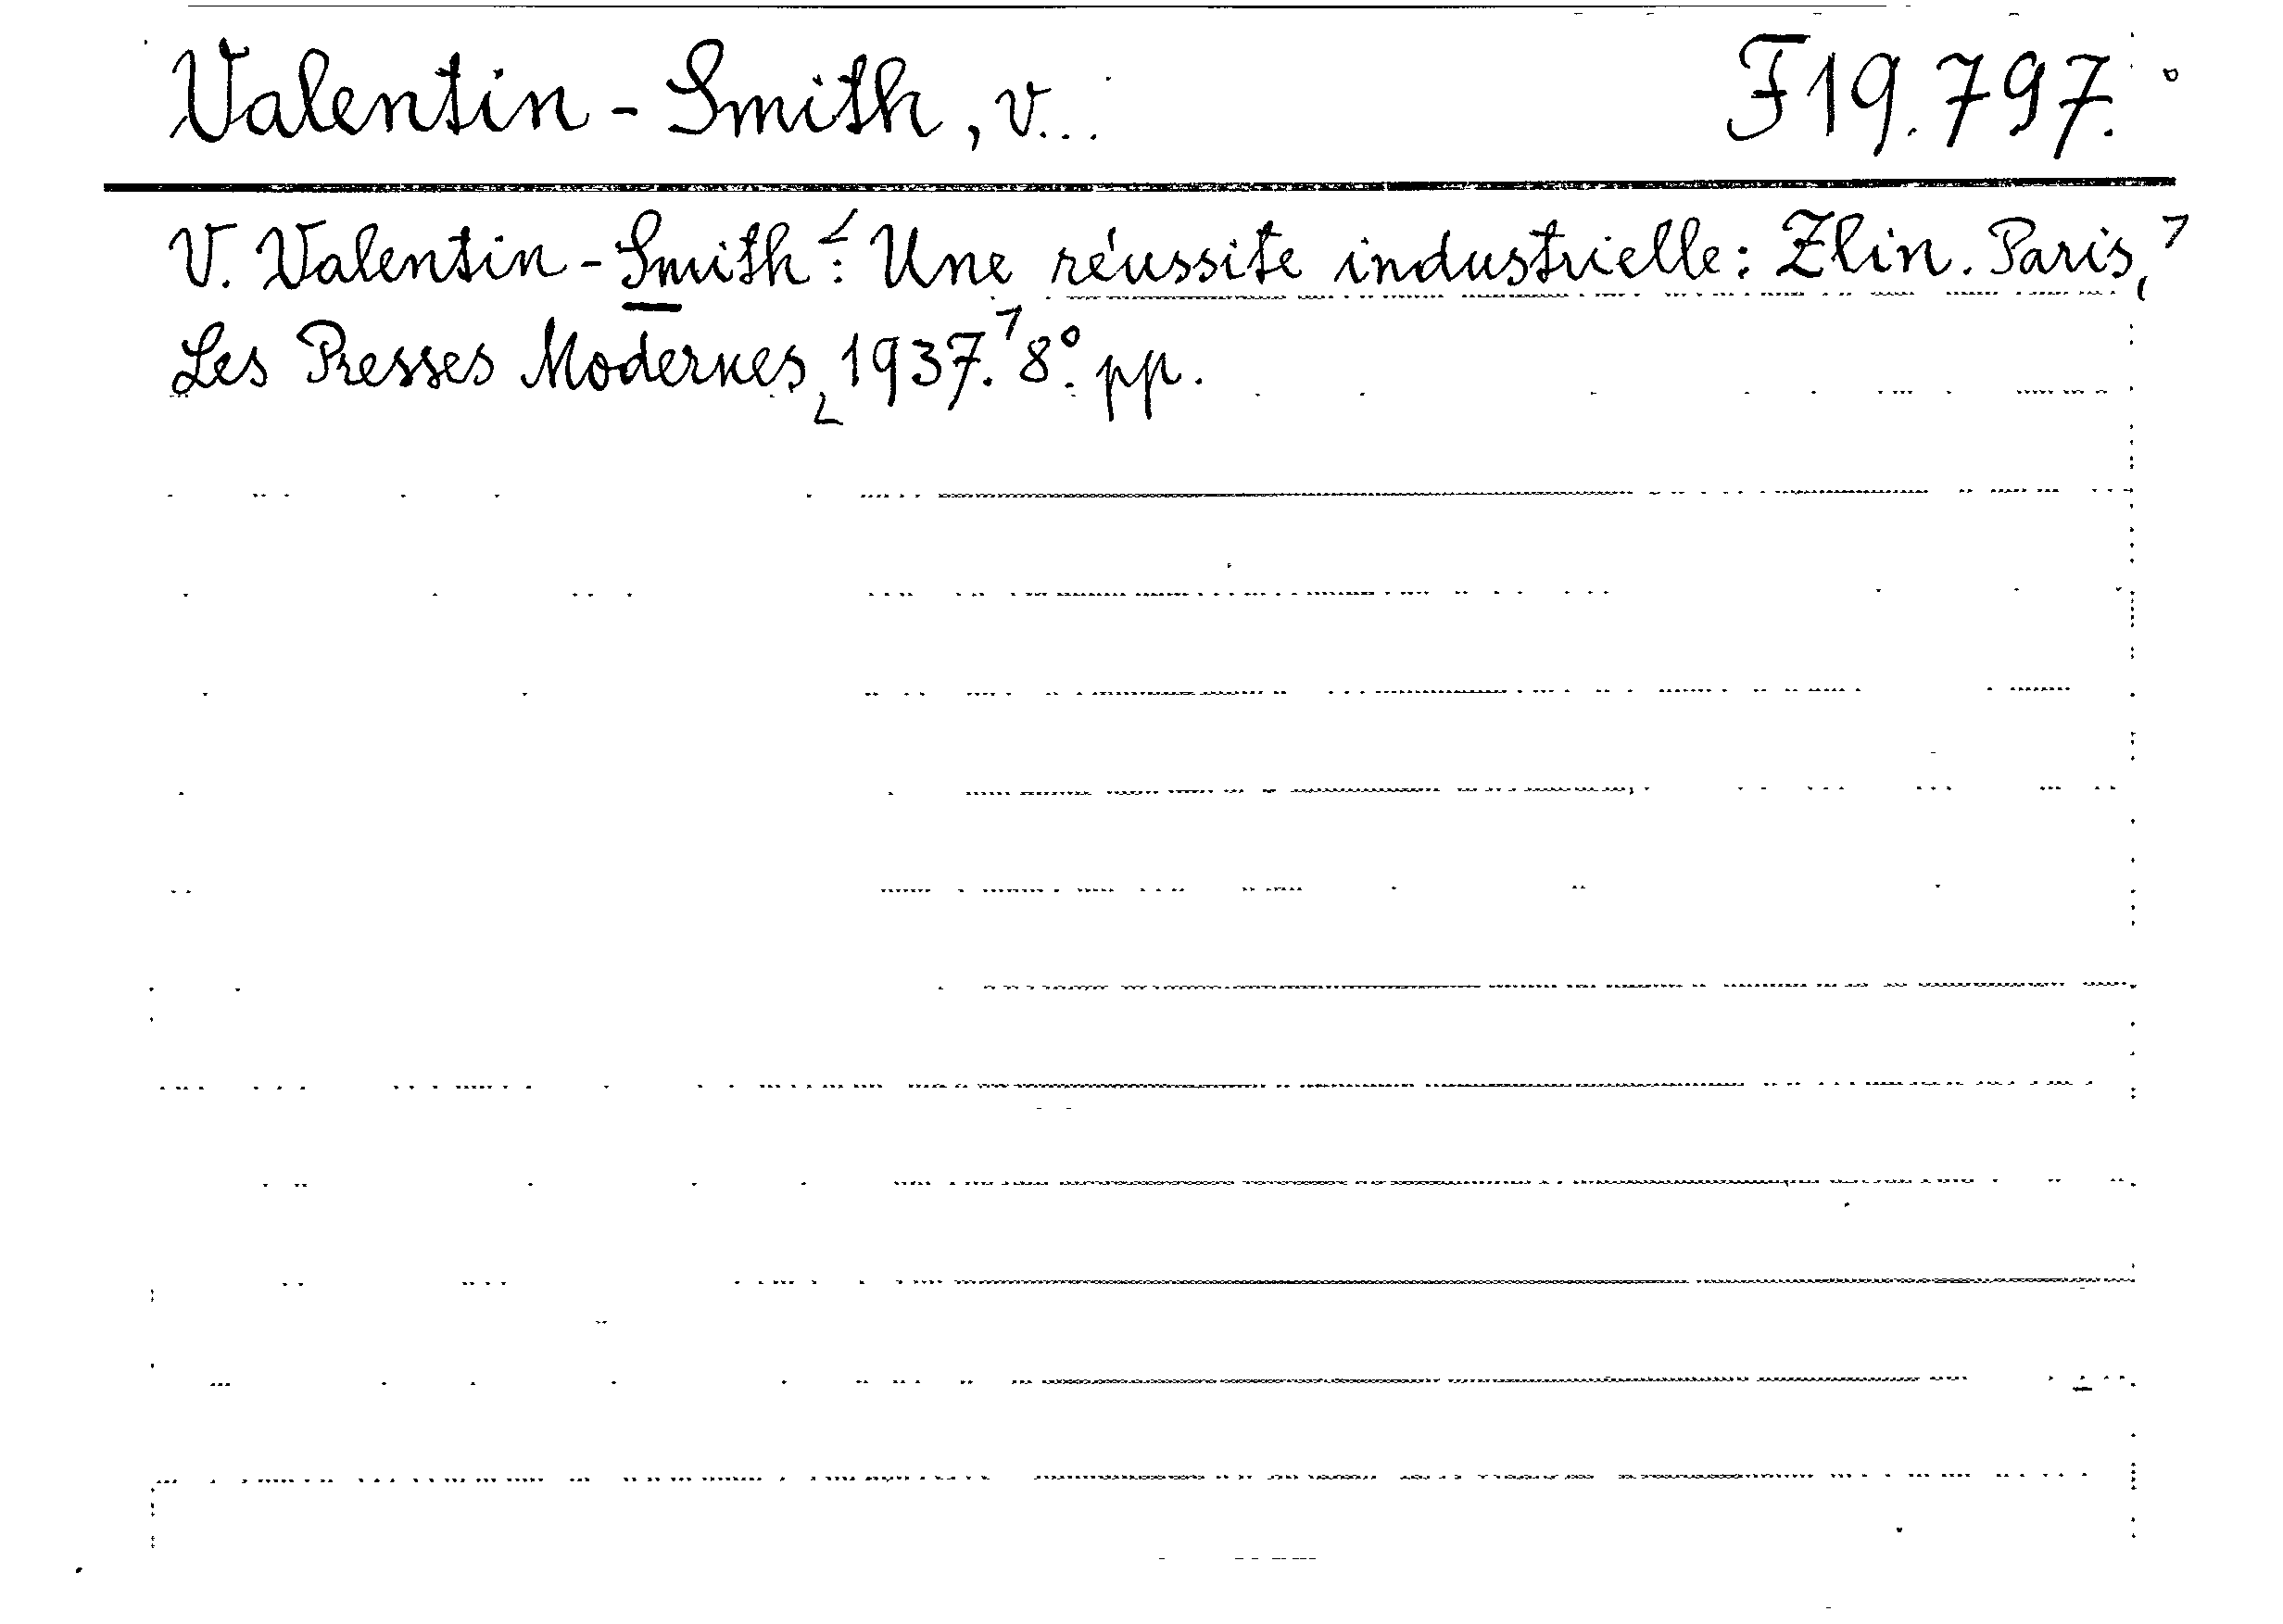 Valentin-Smith, V... F19.797.
V. Valentin-Smith: Une réussite industrielle: Zlin. Paris,
Les Presses Modernes, 1937. 8°. pp.